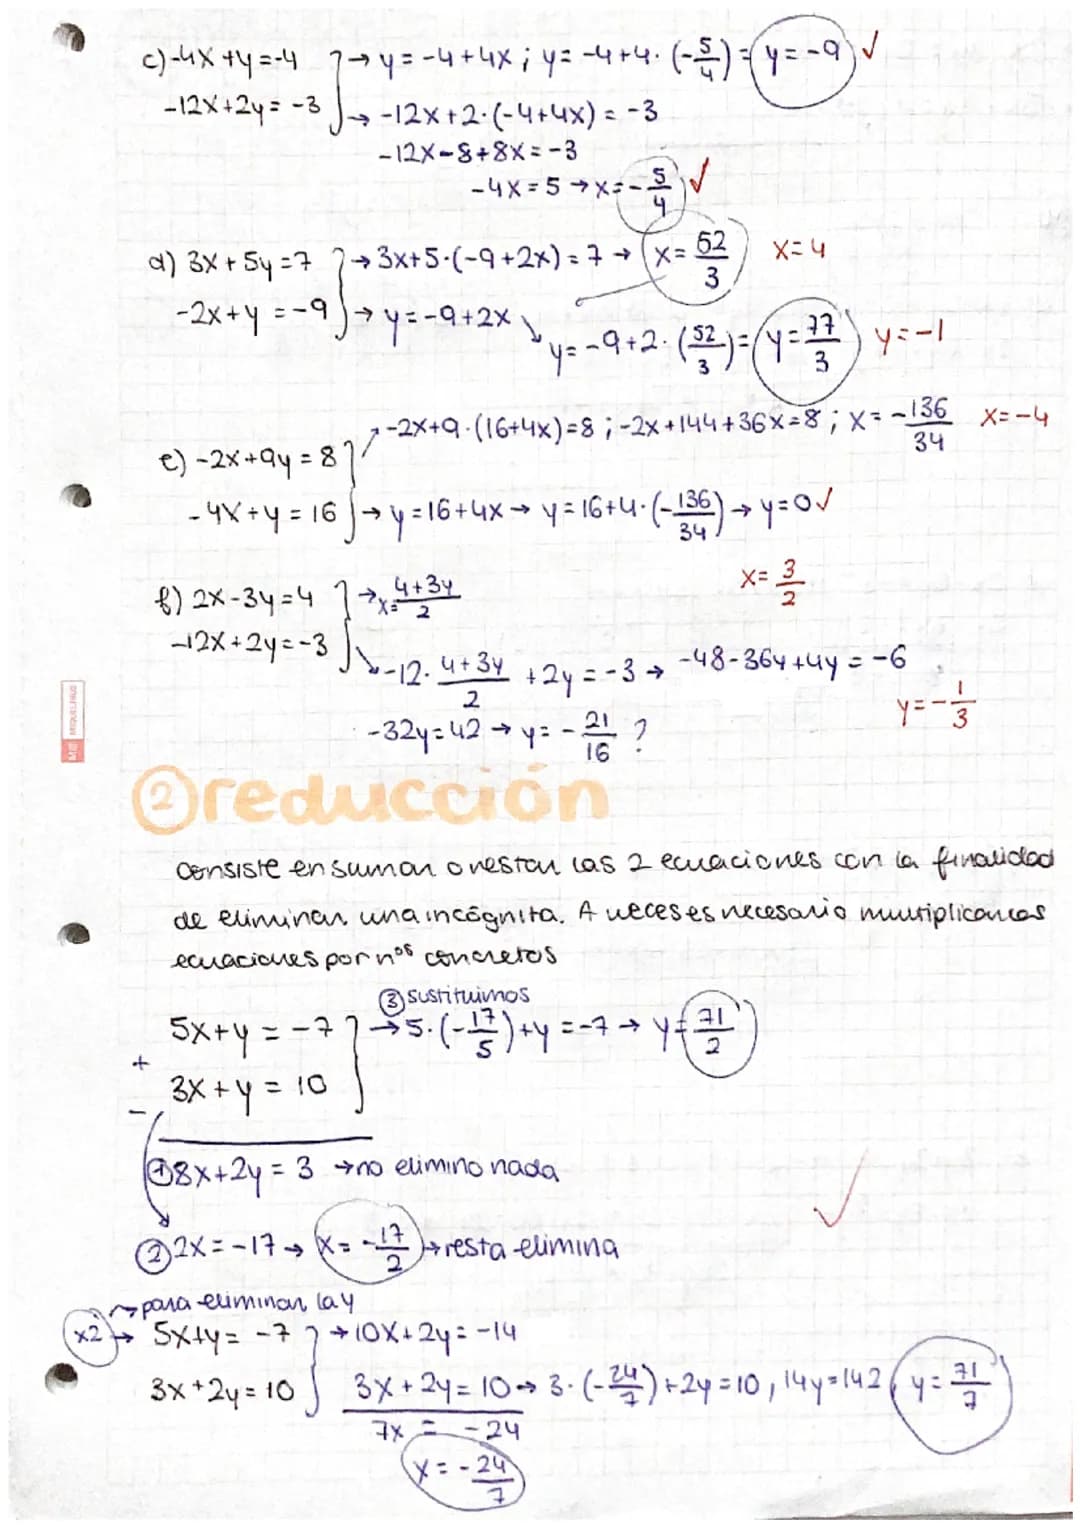 c) -4x+y=-4 → y=-4+4x ; y=-4+4·(-5/4)= y=-9 ✓
-12x+2y=-3 → -12x+2·(-4+4x)=-3
-12x-8+8x=-3
-4x=5 → x=-5/4 ✓
d) 3x+5y=7 → 3x+5·(-9+2x)=7 → x=52/3 x=4
-2x+y=-9 → y=-9+2x
y=-9+2·(52/3)= y=77/3 y=-1
-2x+9·(16+4x)=8 ; -2x+144+36x=8 ; x=-136/34 x=-4
e) -2x+9y=8
-4x+y=16 → y=16+4x → y=16+4·(-136/34) → y=0 ✓
f) 2x-3y=4 → x=4+3y/2 x=3/2
-12x+2y=-3
-12·4+3y/2 +2y=-3 → -48-36y+4y=-6
-32y=42 → y=-21/16 ? y=-1/3
MIQUELRIUS
② reducción
consiste en sumar o restar las 2 ecuaciones con la finalidad
de eliminar una incógnita. A veces es necesario multiplicar las
ecuaciones por nºs concretos
③ sustituimos
5x+y=-7 → 5·(-17/5)+y=-7 → y=71/2
+
3x+y=10
-
① 8x+2y=3 → no elimino nada
✓
② 2x=-17 → x=-17/2 → resta elimina
→ para eliminar la y
x2 → 5x+y=-7 → 10x+2y=-14
3x+2y=10 3x+2y=10 → 3·(-24/7)+2y=10, 14y=142, y=71/7
7x = -24
x=-24/7